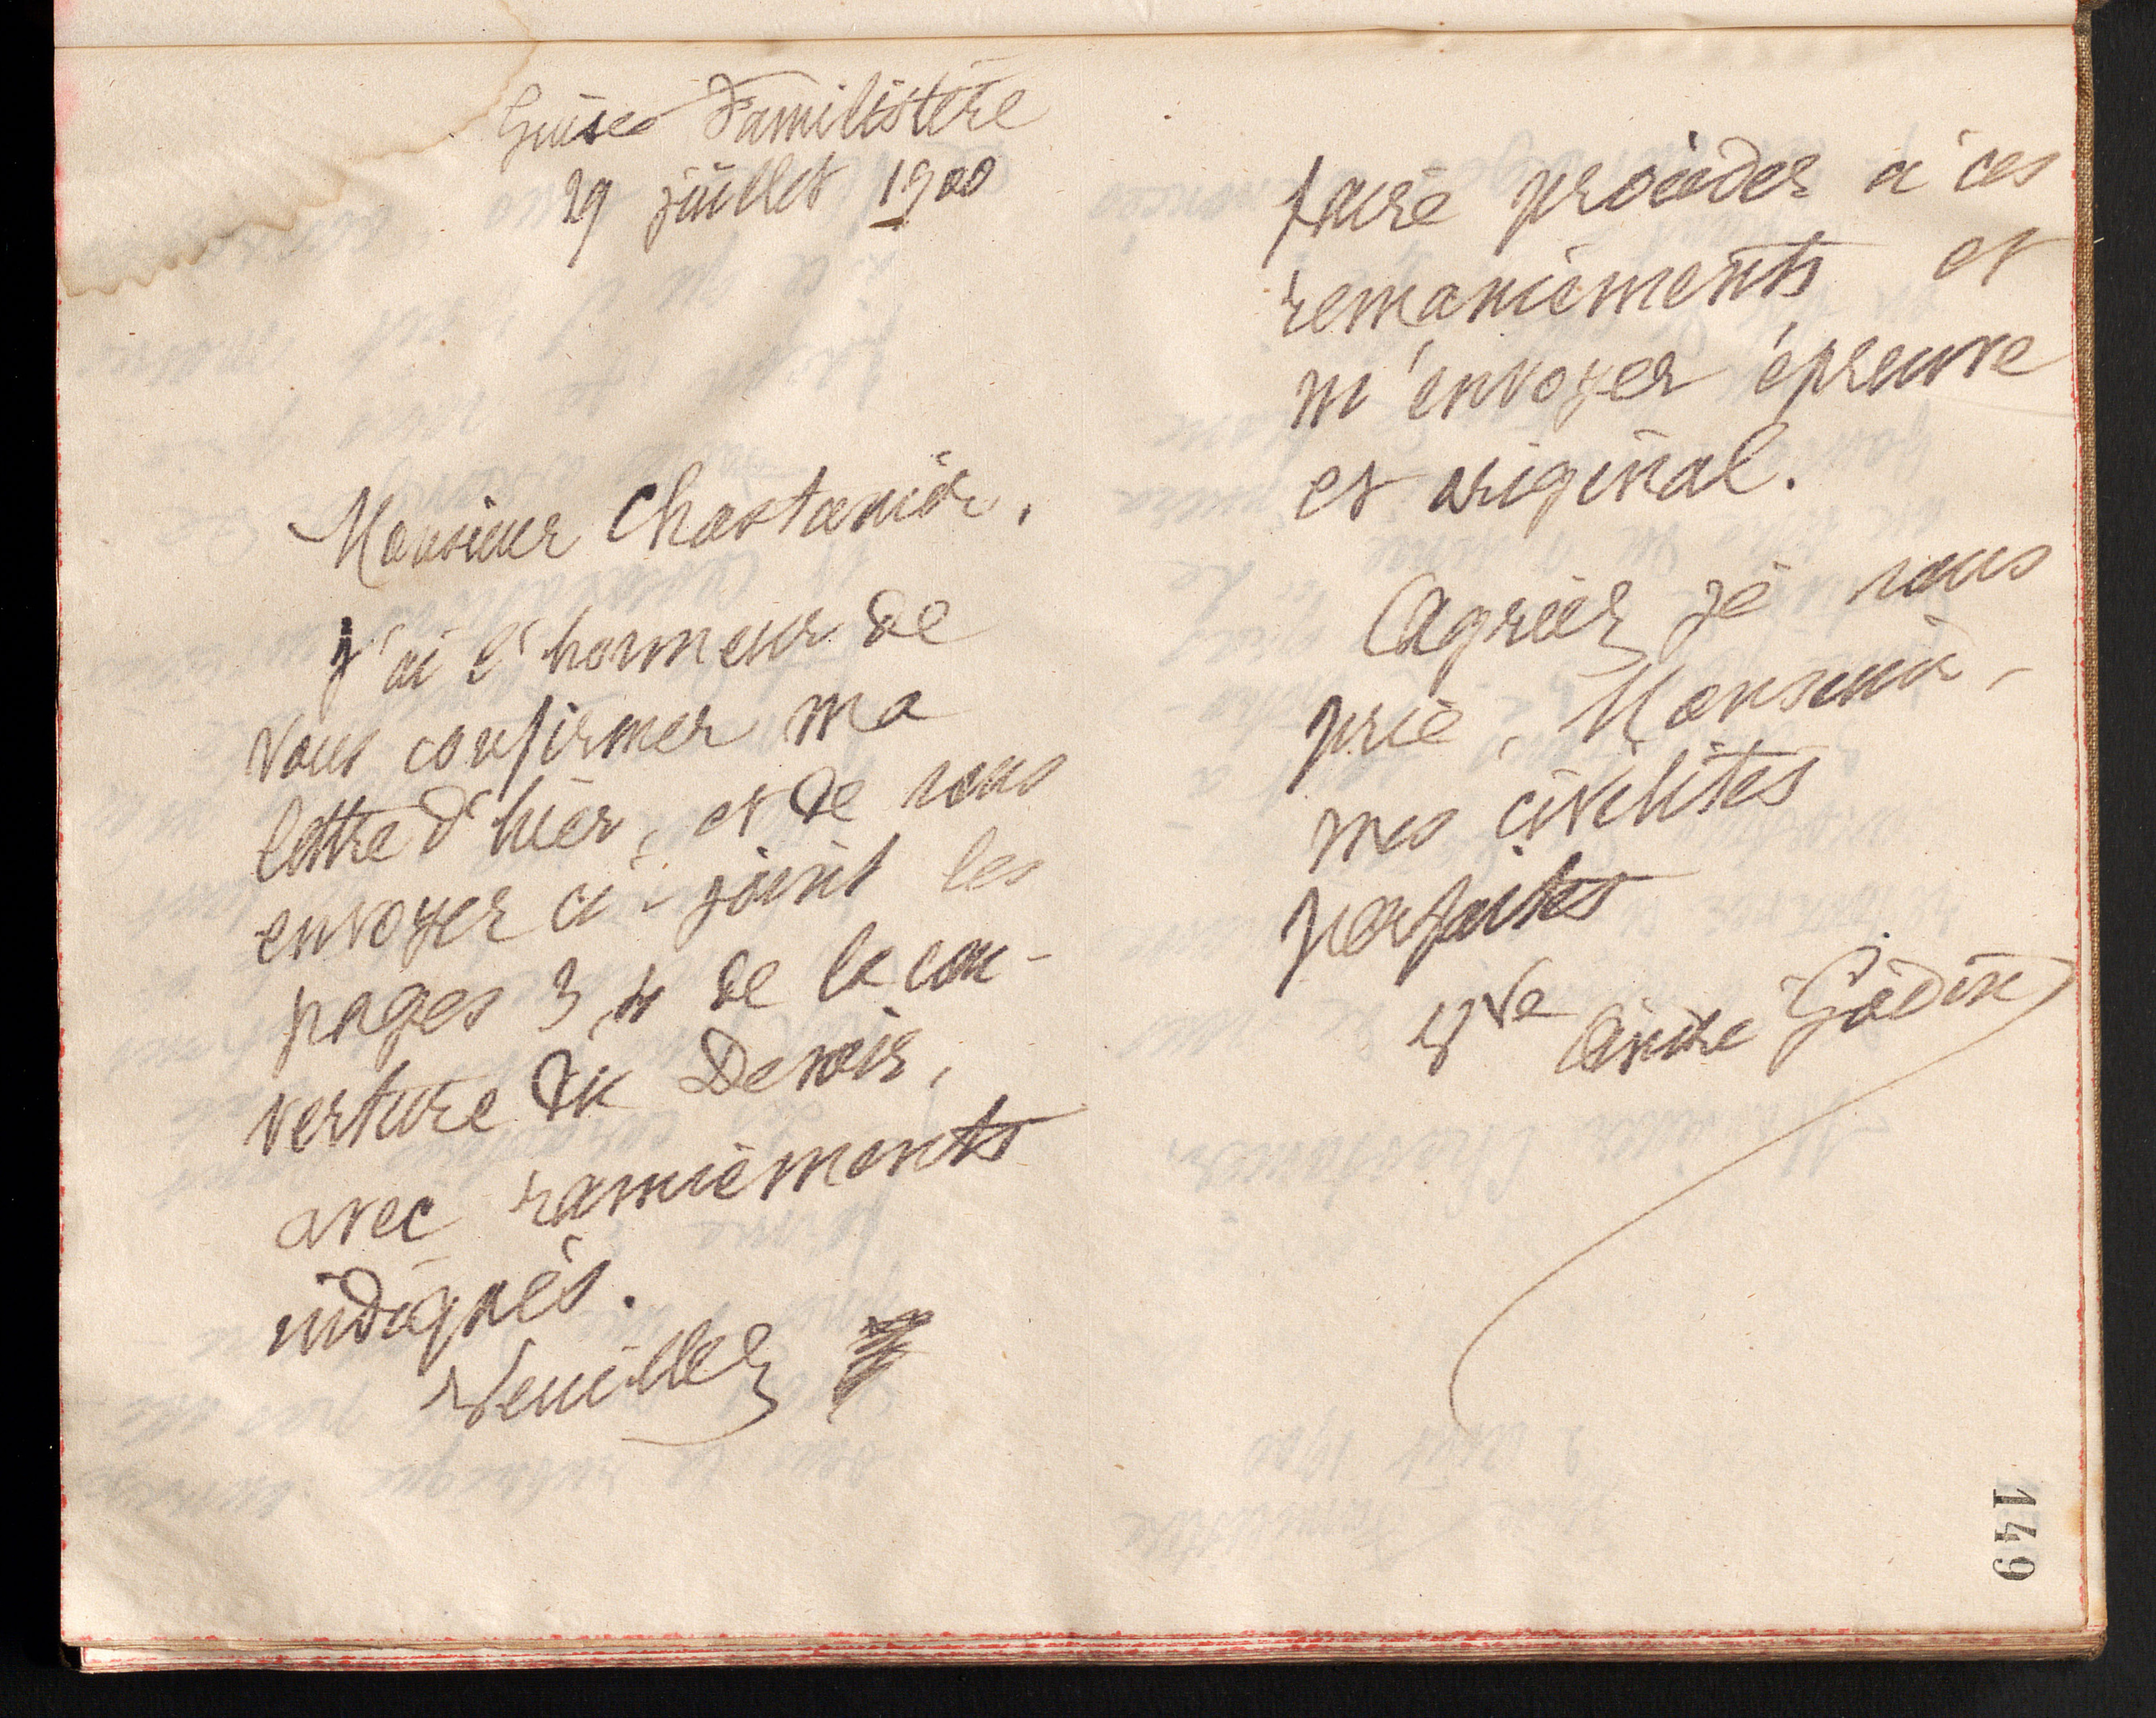 Guise Familistère
29 juillet 1900
Monsieur Chastanier,
J'ai l'honneur de
vous confirmer ma
lettre d'hier, et de vous
envoyer ci-joint les
pages 3, 4 de la cou-
verture du Devoir,
avec ramiements
indiqués.
Veuillez
faire procéder à ces
remaniements et
m'envoyer épreuve
et original.
Agréez je vous
prie, Monsieur,
mes civilités
parfaites
Vve Godin
149